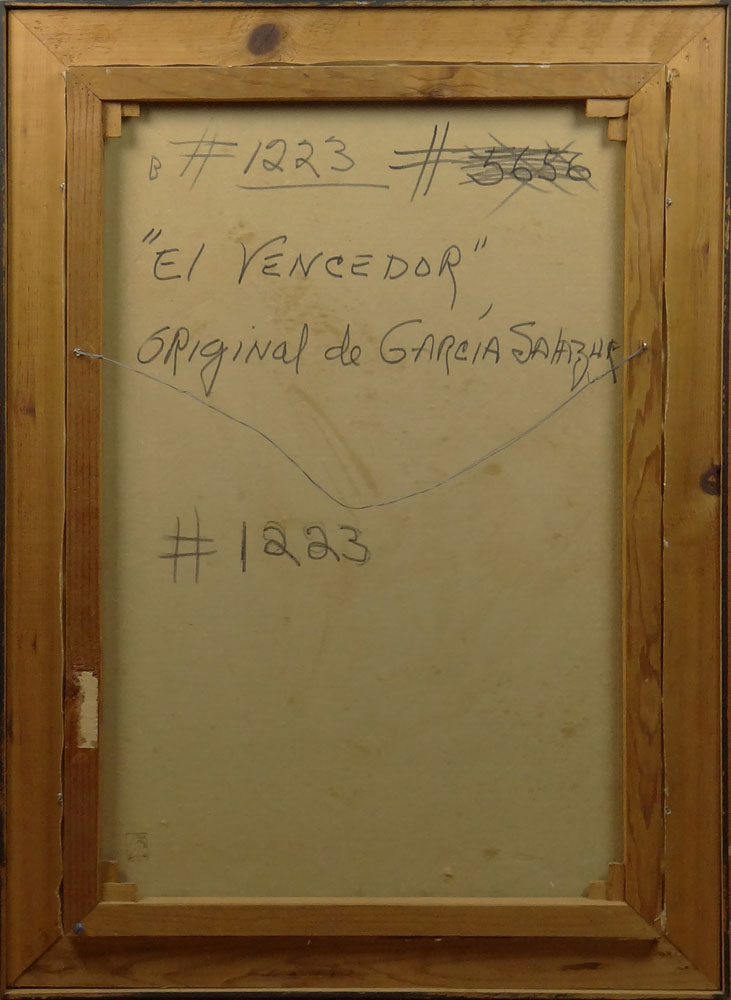 B #1223 # 5656
"El VENCEDOR"
ORIGiNal de GARCÍA SALAZAR
#1223